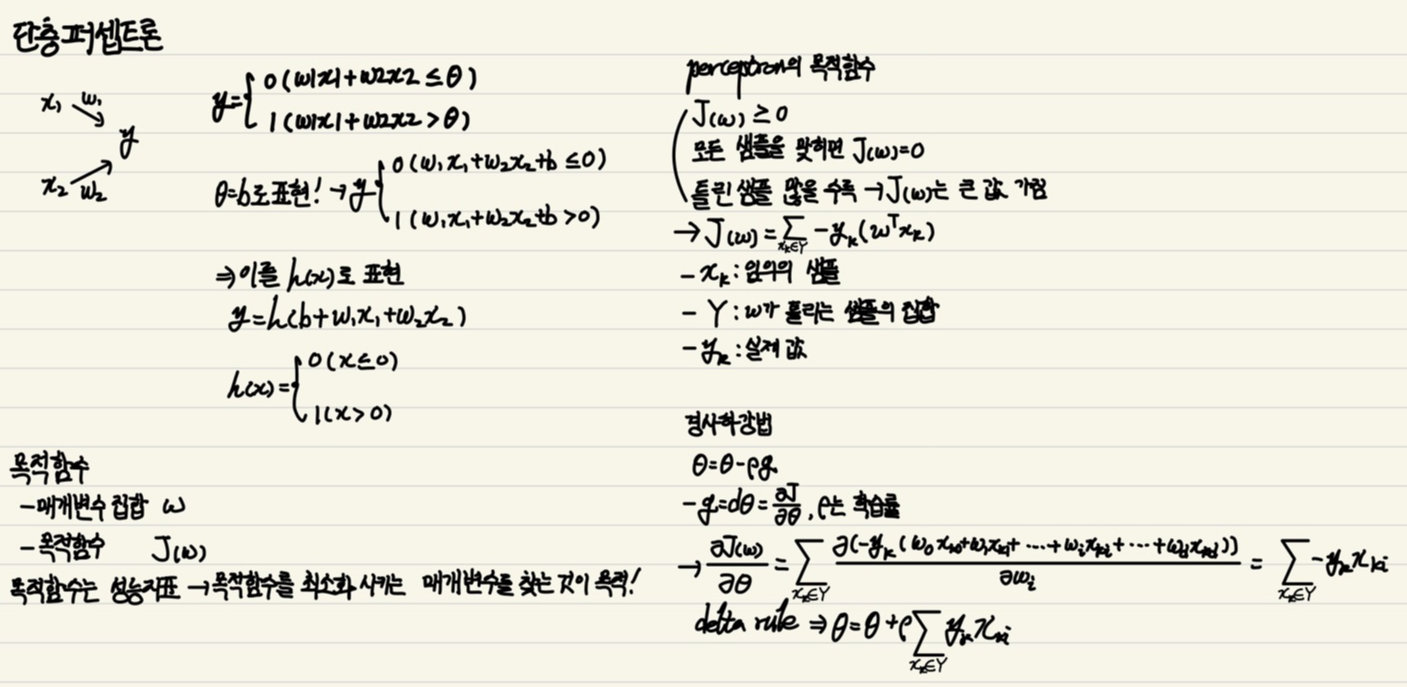 단층퍼셉트론
x₁ w₁
y
x₂ w₂
y={ 0 (w1x1+w2x2 ≤ θ)
1 (w1x1+w2x2 > θ)
θ=b로 표현! → y{ 0 (w₁x₁+w₂x₂+b ≤0)
1 (w₁x₁+w₂x₂+b >0)
⇒ 이를 h(x)로 표현
y=h(b+w₁x₁+w₂x₂)
h(x)={ 0 (x≤0)
1 (x>0)
목적함수
- 매개변수 집합 w
- 목적함수 J(w)
목적함수는 성능지표 → 목적함수를 최소화 시키는 매개변수를 찾는 것이 목적!
perceptron의 목적함수
J(w) ≥ 0
모든 샘플을 맞히면 J(w)=0
틀린 샘플 많을 수록 → J(w)는 큰 값 가짐
→ J(w) = ∑_{xₖ∈Y} -yₖ(wᵀxₖ)
- xₖ : 임의의 샘플
- Y : w가 틀리는 샘플의 집합
- yₖ : 실제 값
경사하강법
θ=θ-ρg
- g=dθ=∂J/∂θ, ρ는 학습률
→ ∂J(w)/∂θ = ∑_{xₖ∈Y} ∂(-yₖ(w₀xₖ₀+w₁xₖ₁+⋯+wᵢxₖᵢ+⋯+w_d xₖ_d))/∂wᵢ = ∑_{xₖ∈Y} -yₖxₖᵢ
delta rule ⇒ θ=θ+ρ∑_{xₖ∈Y} yₖxₖᵢ